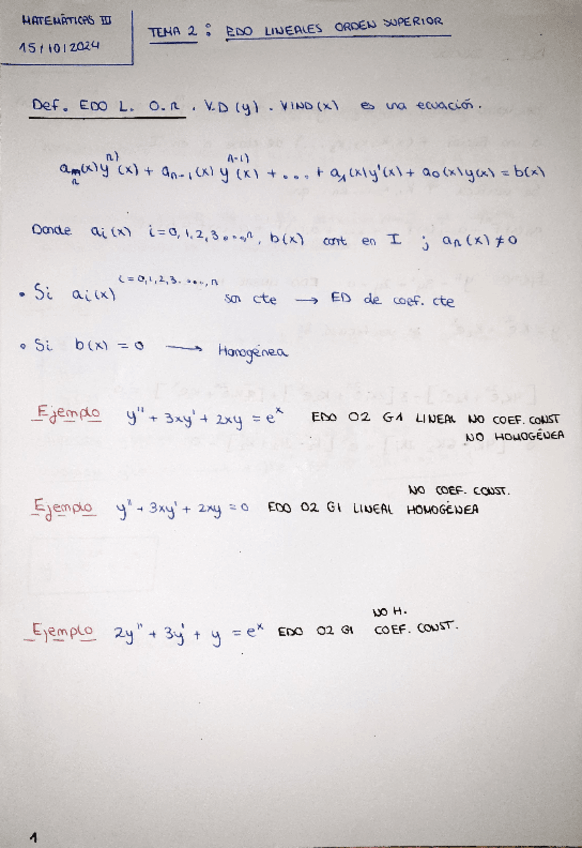 MATEMÁTICAS III
15/10/2024
TEMA 2: EDO LINEALES ORDEN SUPERIOR
Def. EDO L. O.n. V.D (y). VIND (x) es una ecuación.
aₙ(x)y⁽ⁿ⁾(x) + aₙ₋₁(x) y⁽ⁿ⁻¹⁾(x) + ... + a₁(x)y'(x) + a₀(x)y(x) = b(x)
Donde aᵢ(x) i=0,1,2,3...,n, b(x) cont en I ; aₙ(x) ≠ 0
• Si aᵢ(x) i=0,1,2,3...,n son cte → ED de coef. cte
• Si b(x) = 0 → Homogénea
Ejemplo y'' + 3xy' + 2xy = eˣ EDO O2 G1 LINEAL NO COEF. CONST
NO HOMOGÉNEA
NO COEF. CONST.
Ejemplo y'' + 3xy' + 2xy = 0 EDO O2 G1 LINEAL HOMOGÉNEA
NO H.
Ejemplo 2y'' + 3y' + y = eˣ EDO O2 G1 COEF. CONST.
1